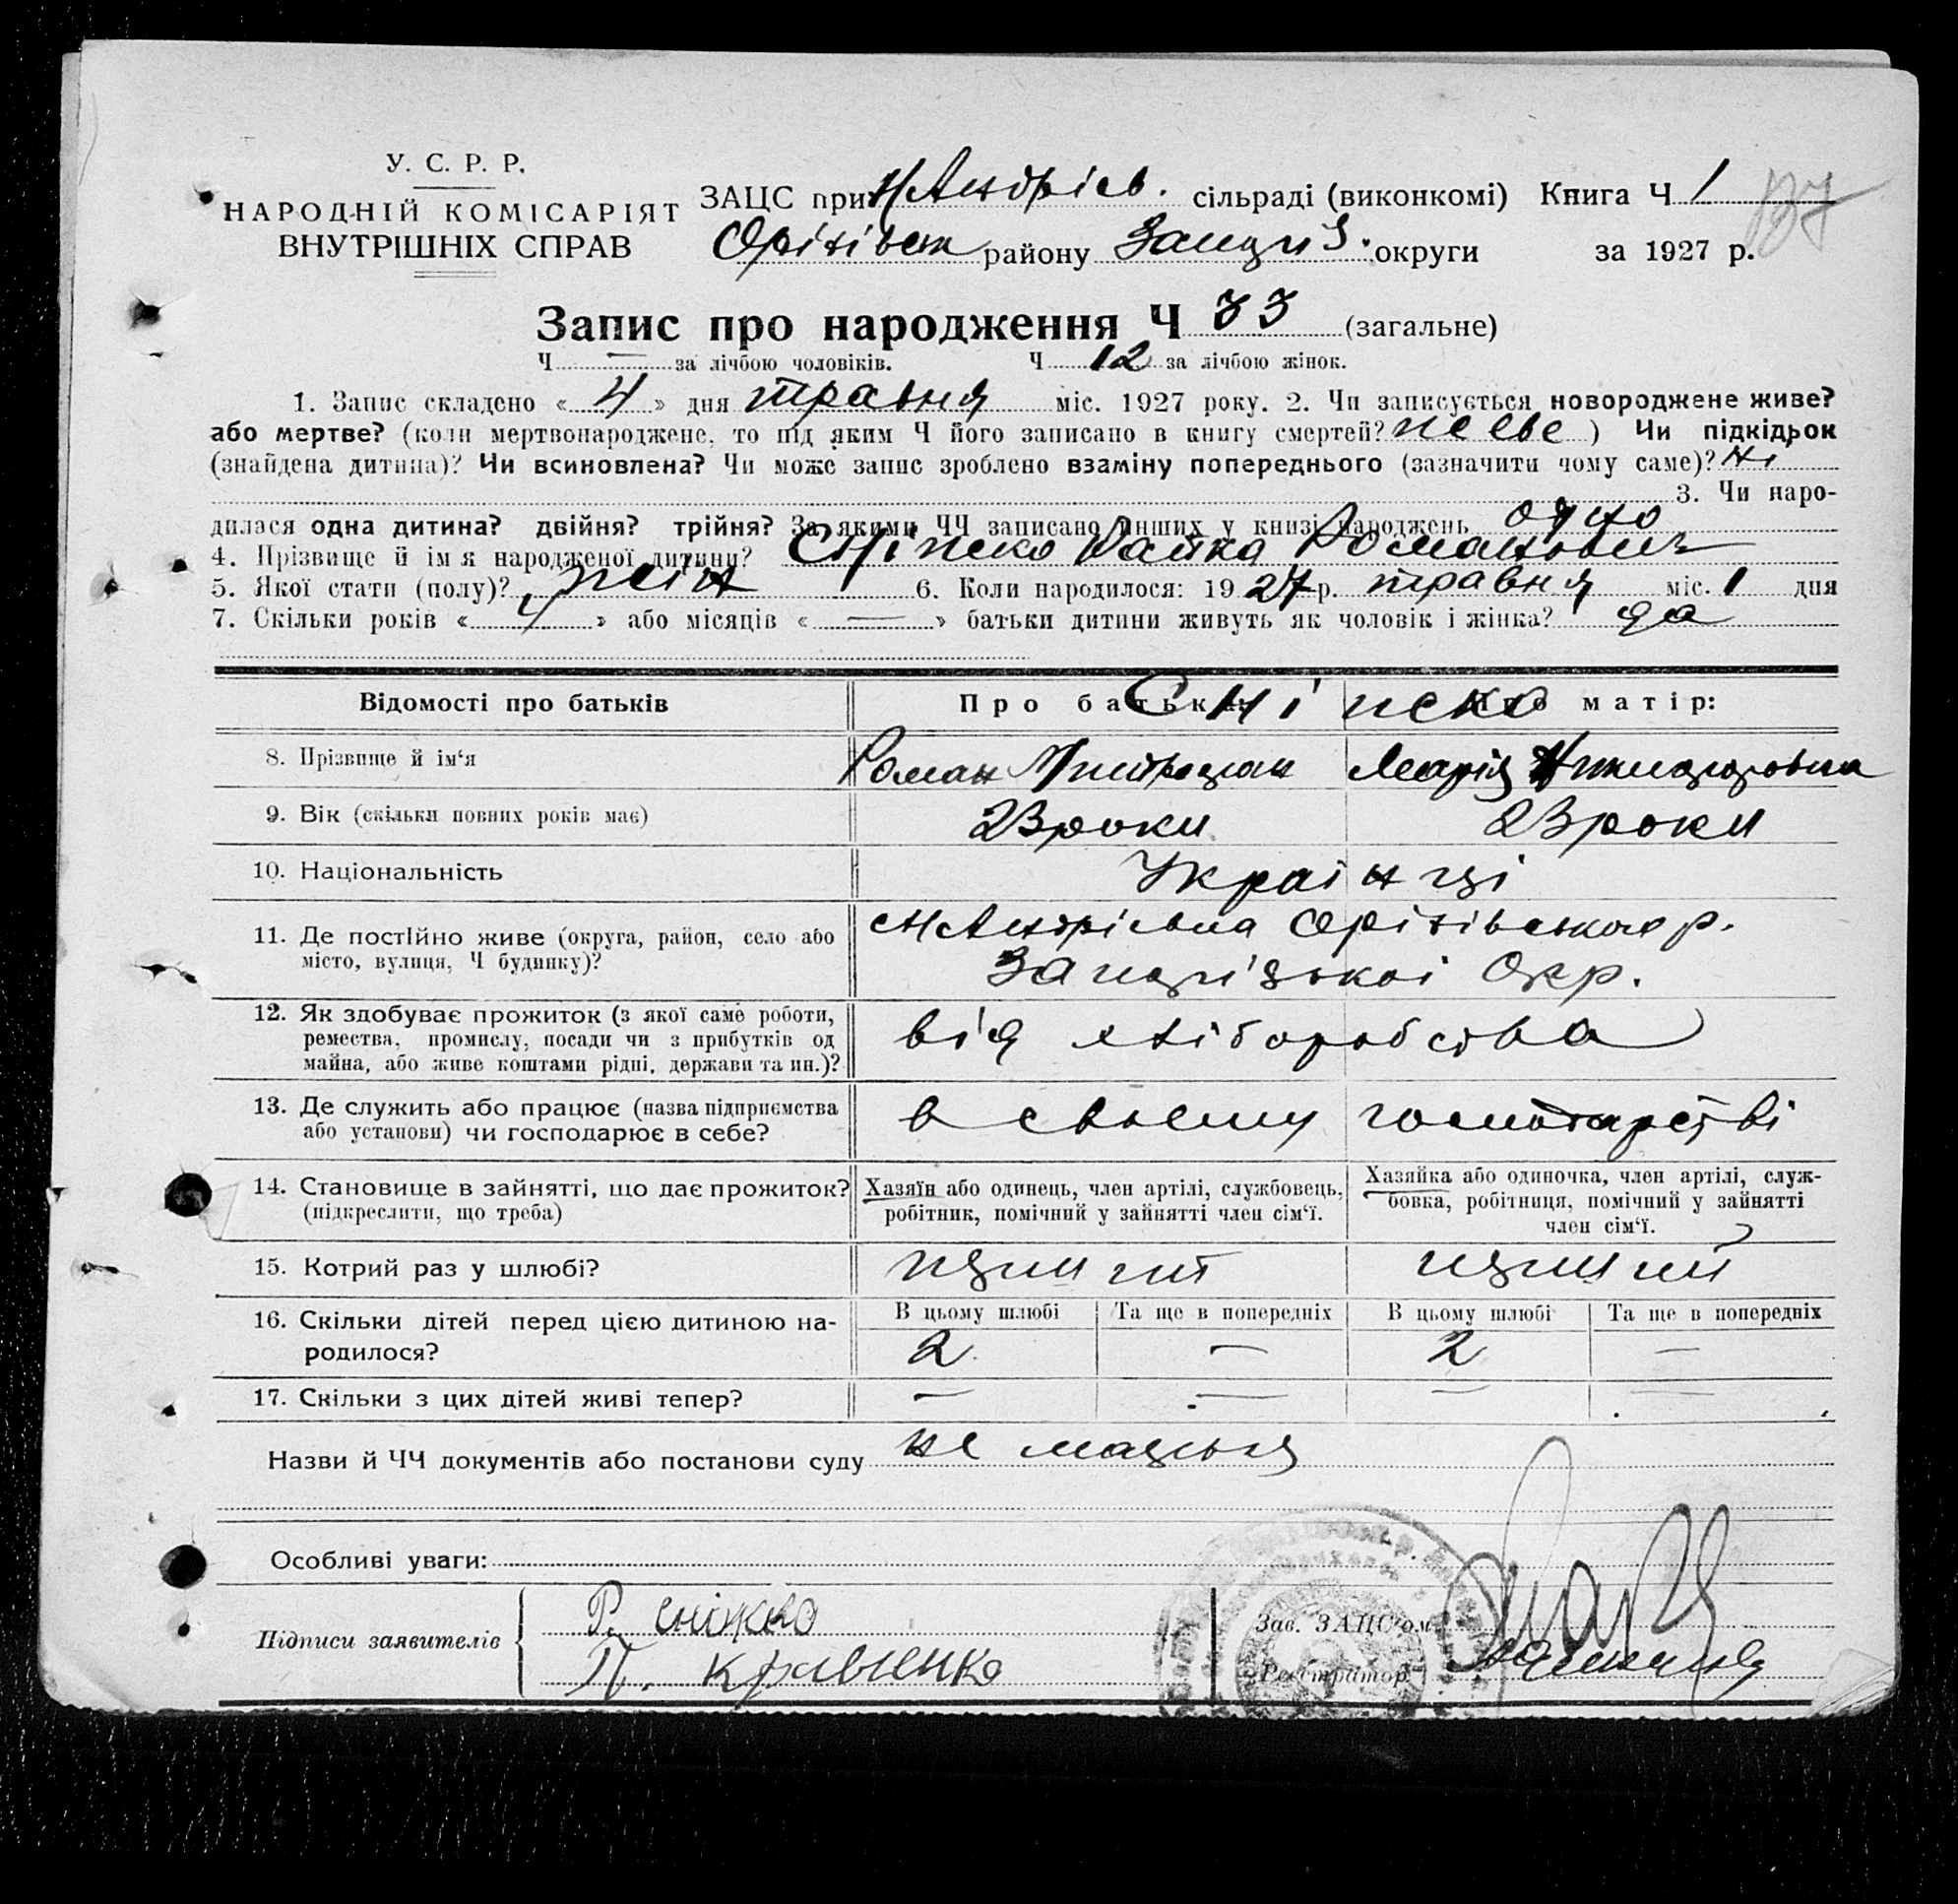 У. С. Р. Р.
НАРОДНІЙ КОМІСАРІЯТ
ВНУТРІШНІХ СПРАВ
ЗАЦС при Н Андрієв. сільраді (виконкомі) Книга Ч 1
137
Оріхівськ району Запоріз. округи за 1927 р.
Запис про народження Ч 33 (загальне)
Ч — за лічбою чоловіків. Ч 12 за лічбою жінок.
1. Запис складено « 4 » дня травня міс. 1927 року. 2. Чи записується новороджене живе?
або мертве? (коли мертвонароджене, то під яким Ч його записано в книгу смертей? живе ) Чи підкідьок
(знайдена дитина)? Чи всиновлена? Чи може запис зроблено взаміну попереднього (зазначити чому саме)? Ні
3. Чи наро-
дилася одна дитина? двійня? трійня? За якими ЧЧ записано инших у книзі народжень одно
4. Прізвище й ім'я народженої дитини? Романовна
5. Якої стати (полу)? жін 6. Коли народилося: 19 27 р. травня міс. 1 дня
7. Скільки років « 4 » або місяців « — » батьки дитини живуть як чоловік і жінка? да
Відомості про батьків Про батька: Про матір:
8. Прізвище й ім'я Роман Марія
9. Вік (скільки повних років має) 23 роки 23 роки
10. Національність Українці
11. Де постійно живе (округа, район, село або
місто, вулиця, Ч будинку)?
Н Андрієвка Оріхівського р.
Запорізької Окр.
12. Як здобуває прожиток (з якої саме роботи,
ремества, промислу, посади чи з прибутків од
майна, або живе коштами рідні, держави та ин.)?
від хліборобства
13. Де служить або працює (назва підприємства
або установи) чи господарює в себе?
в своєму господарстві
14. Становище в зайнятті, що дає прожиток?
(підкреслити, що треба)
Хазяїн або одинець, член артілі, службовець,
робітник, помічний у зайнятті член сім'ї.
Хазяйка або одиночка, член артілі, служ-
бовка, робітниця, помічний у зайнятті
член сім'ї.
15. Котрий раз у шлюбі?
16. Скільки дітей перед цією дитиною на-
родилося?
В цьому шлюбі Та ще в попередніх В цьому шлюбі Та ще в попередніх
2 — 2 —
17. Скільки з цих дітей живі тепер? — — — —
Назви й ЧЧ документів або постанови суду не
Особливі уваги:
Підписи заявителів
Р. Сніжко
П. Кравченко
Зав. ЗАЦС'ом
Реєстратор